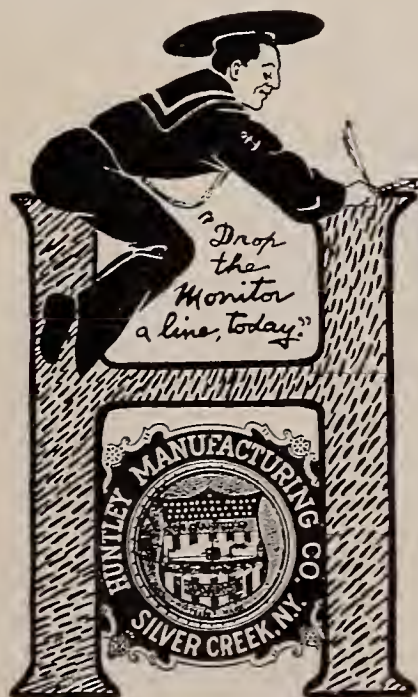 "Drop
the
Monitor
a line, today."
HUNTLEY MANUFACTURING CO.
SILVER CREEK, N.Y.